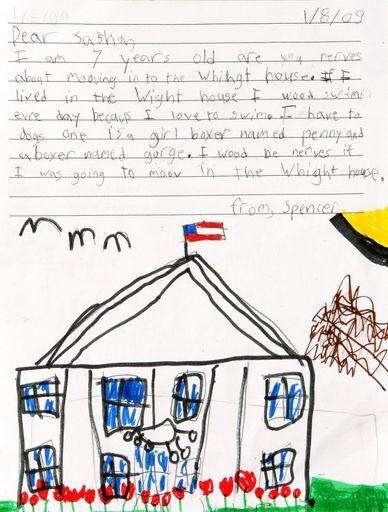 1/8/09
Dear Sashan,
I am 7 years old are you nerves
about mooving in to the Whihgt house. If I
lived in the Wight house I wood swim
evre day becaus I love to swim. I have to
dogs one is a girl boxer named penny and
a boxer named gorge. I wood be nerves if
I was going to moov in the Whight house.
from, Spencer